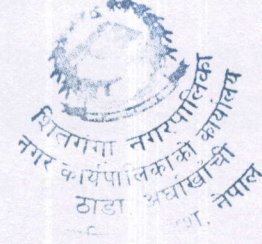 शितगंगा नगरपालिका
नगर कार्यपालिकाको कार्यालय
ठाडा अर्घाखाँची
नेपाल